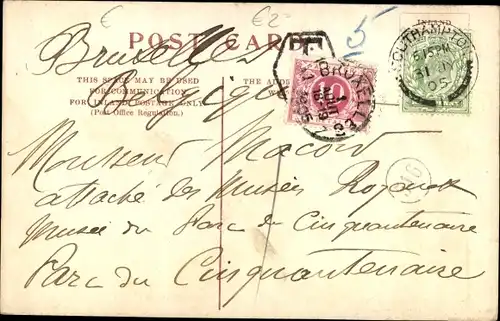 € €2
INLAND
POST CARD
T
5
Bruxelles
THIS SPACE MAY BE USED
FOR COMMUNICATION
FOR INLAND POSTAGE ONLY
(Post Office Regulation.)
THE ADD
SOUTHAMPTON
6.15PM
31
05
BRUXELLES
1
AOUT
10
Monsieur Macoir
attaché des Musées Royaux
Musée du Parc du Cinquantenaire
Parc du Cinquantenaire